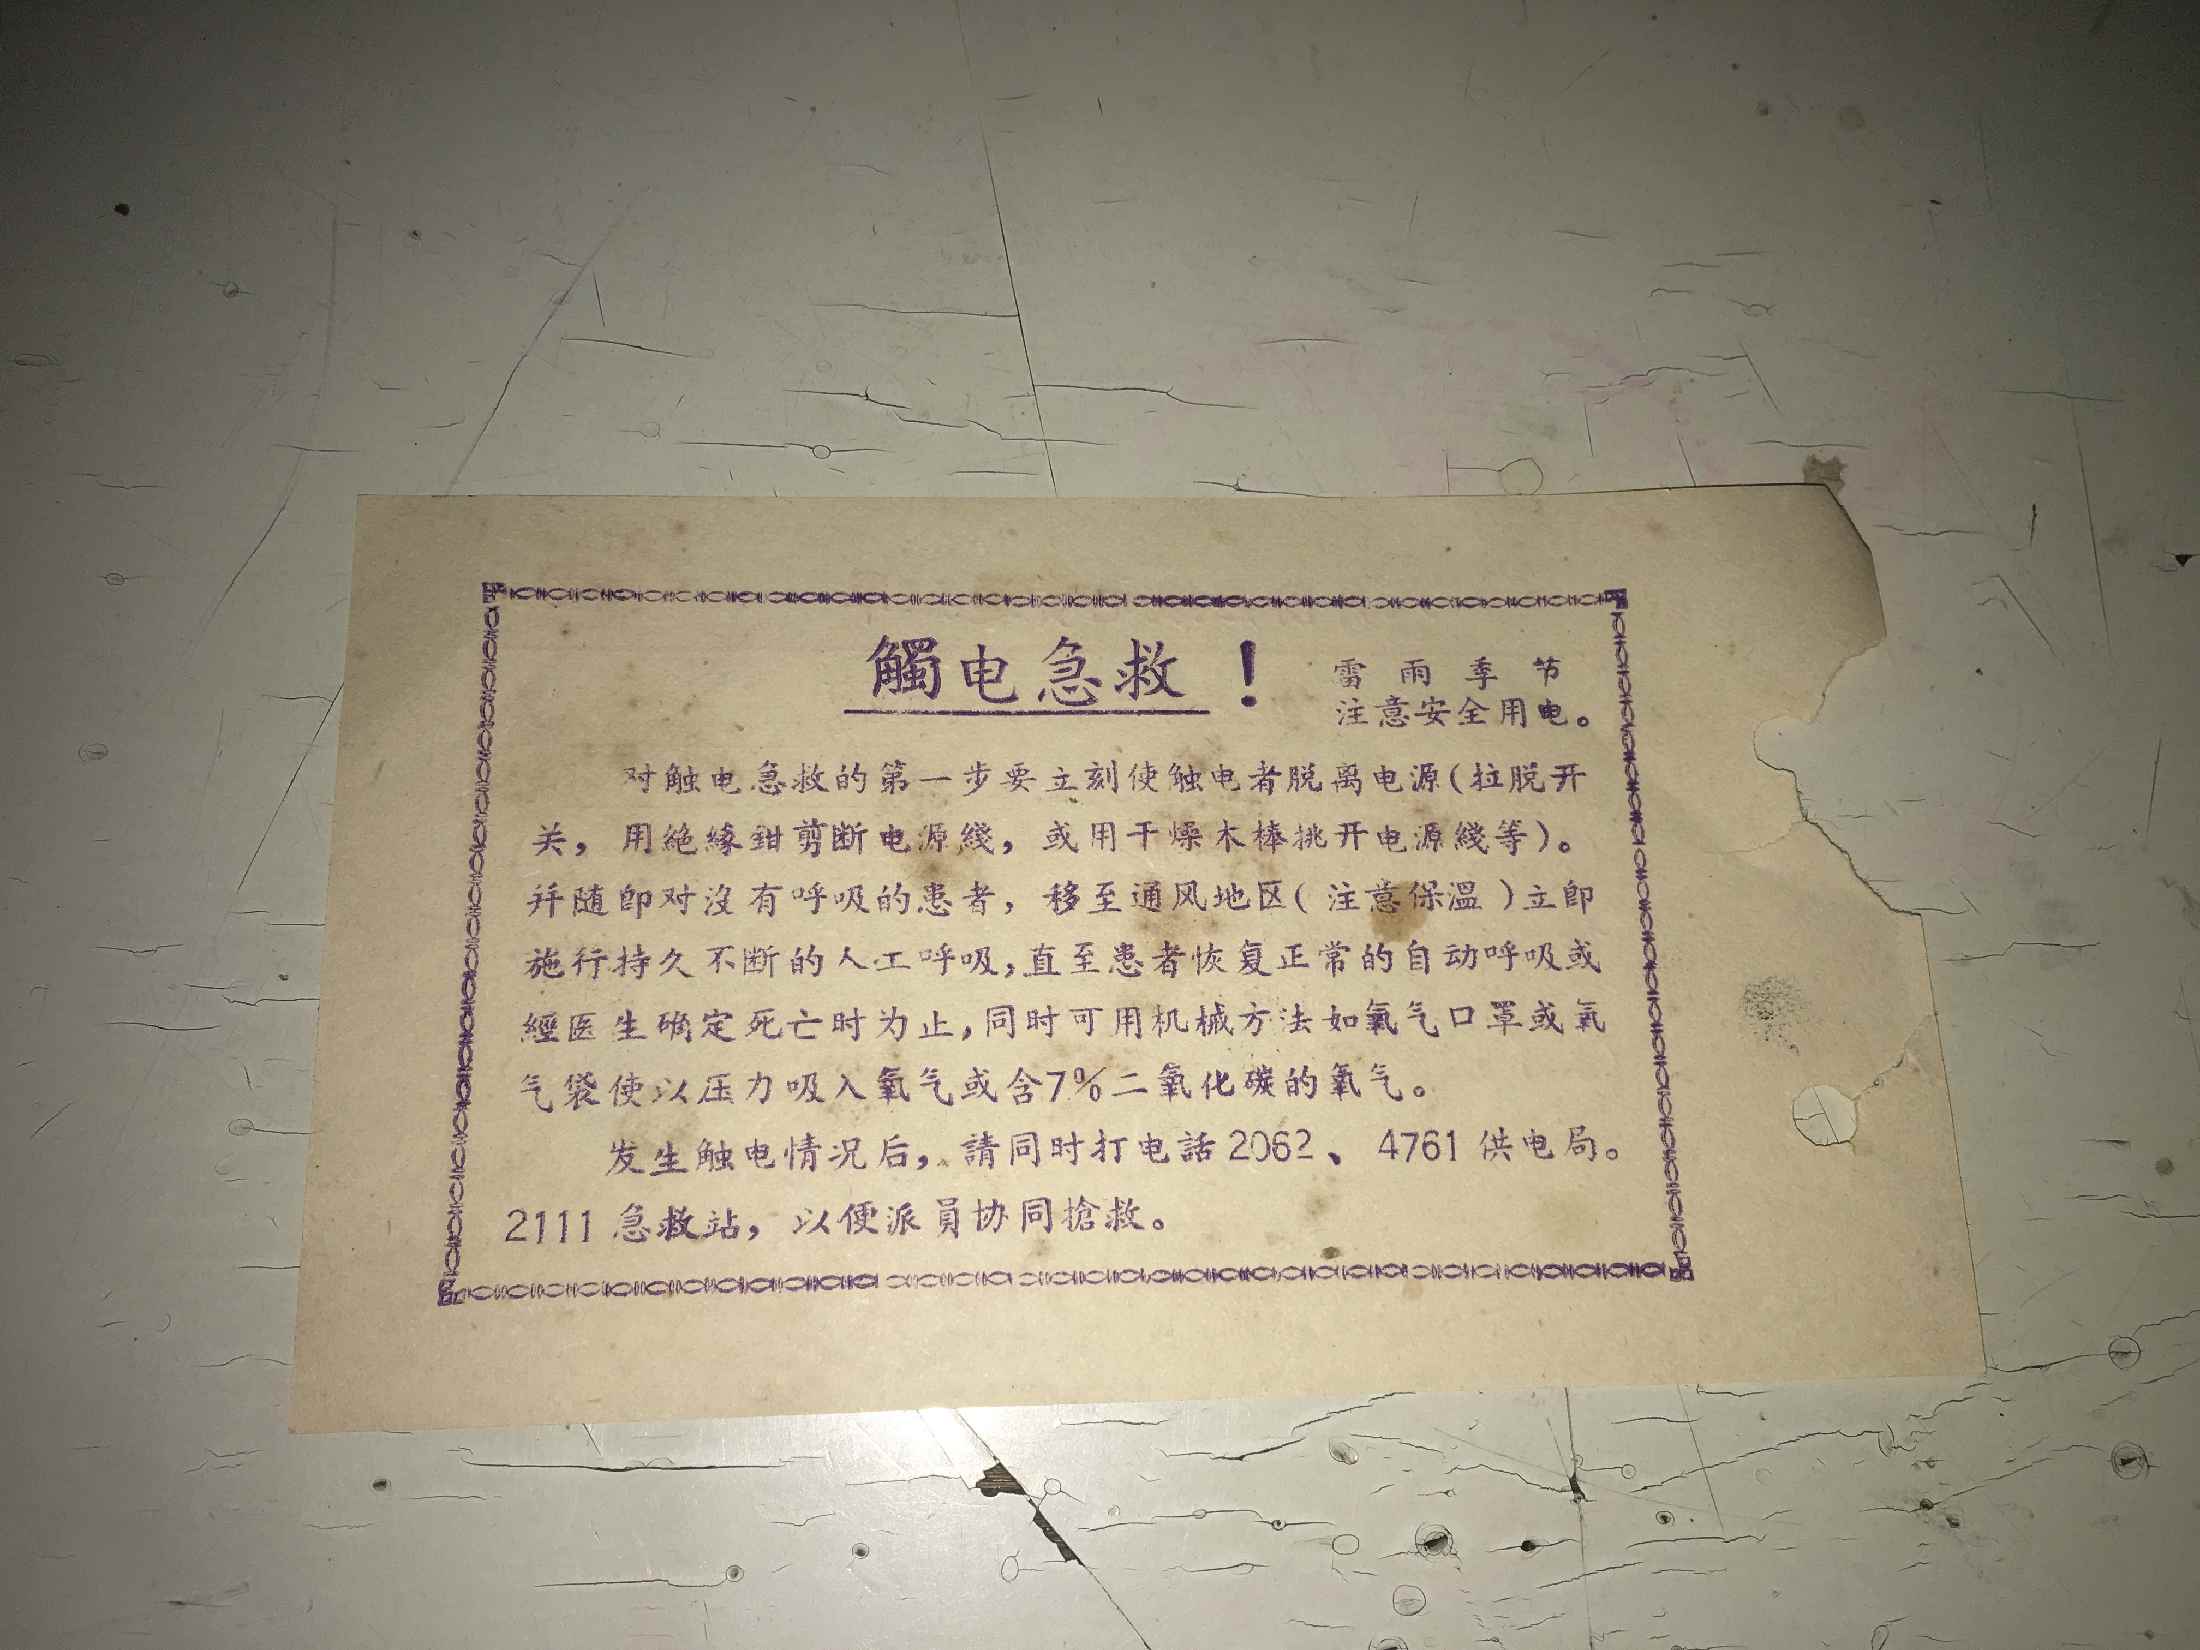 觸电急救！
雷雨季节
注意安全用电。
对触电急救的第一步要立刻使触电者脱离电源(拉脱开
关，用絶緣鉗剪断电源綫，或用干燥木棒挑开电源綫等)。
并随卽对沒有呼吸的患者，移至通风地区(注意保溫)立卽
施行持久不断的人工呼吸，直至患者恢复正常的自动呼吸或
經医生确定死亡时为止，同时可用机械方法如氧气口罩或氧
气袋使以压力吸入氧气或含7%二氧化碳的氧气。
发生触电情况后，請同时打电話2062、4761供电局。
2111急救站，以便派員协同搶救。